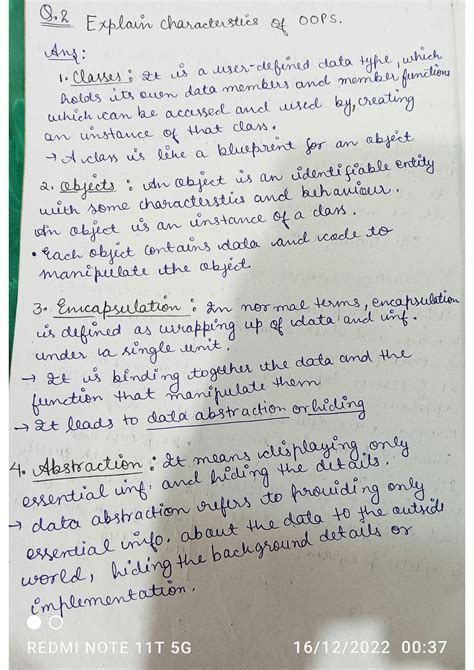 Q.2 Explain characterstics of OOPS.
Ans:
1. Classes : It is a user-defined data type, which
holds its own data members and member functions
which can be accessed and used by, creating
an instance of that class.
→ A class is like a blueprint for an object
2. Objects : An object is an identifiable entity
with some characterstics and behaviour.
An object is an instance of a class.
• Each object contains data and code to
manipulate the object.
3. Encapsulation : In normal terms, encapsulation
is defined as wrapping up of data and inf.
under a single unit.
→ It is binding together the data and the
function that manipulate them
→ It leads to data abstraction or hiding
4. Abstraction : It means displaying only
essential inf. and hiding the details.
→ data abstraction refers to providing only
essential info. about the data to the outside
world, hiding the background details or
implementation.
REDMI NOTE 11T 5G
16/12/2022 00:37